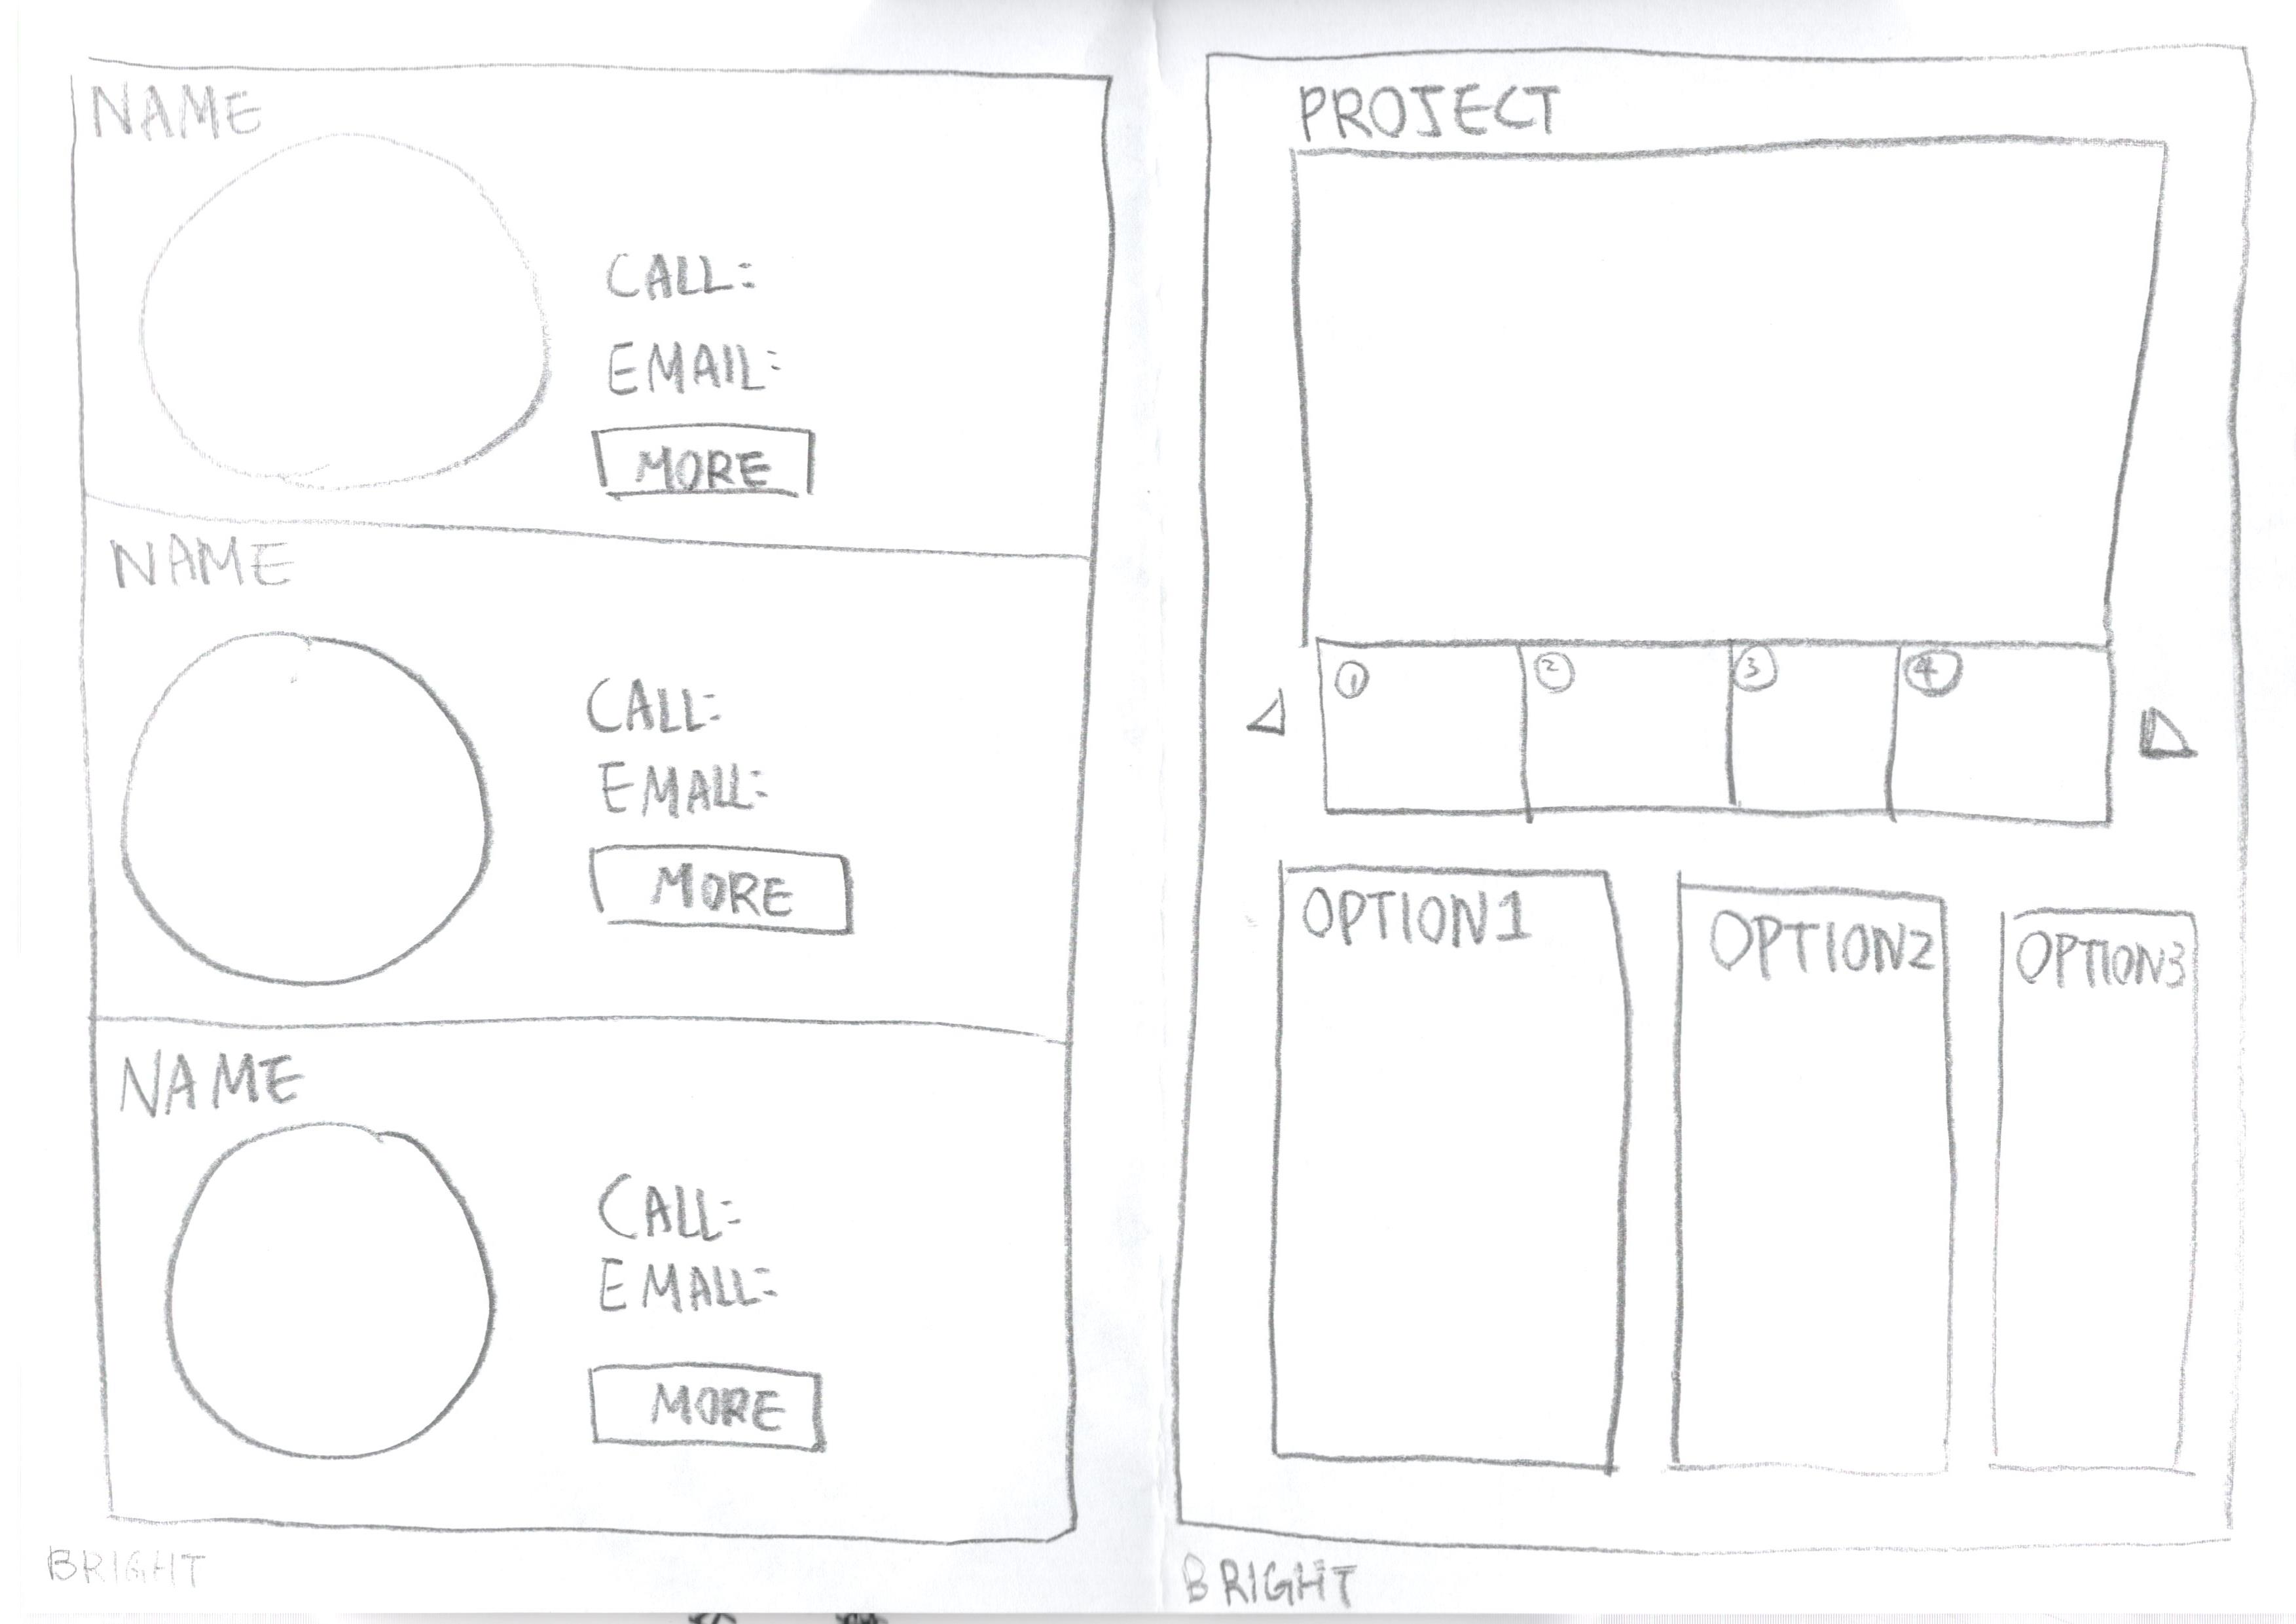 NAME
CALL:
EMAIL:
MORE
NAME
CALL:
EMALL:
MORE
NAME
CALL:
EMALL:
MORE
BRIGHT
PROJECT
1 2 3 4
OPTION1 OPTION2 OPTION3
BRIGHT